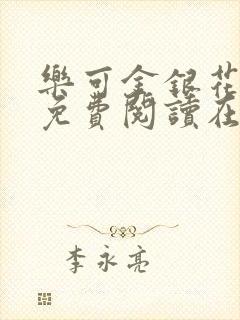 樂可金銀花
免費閱讀在
李永亮